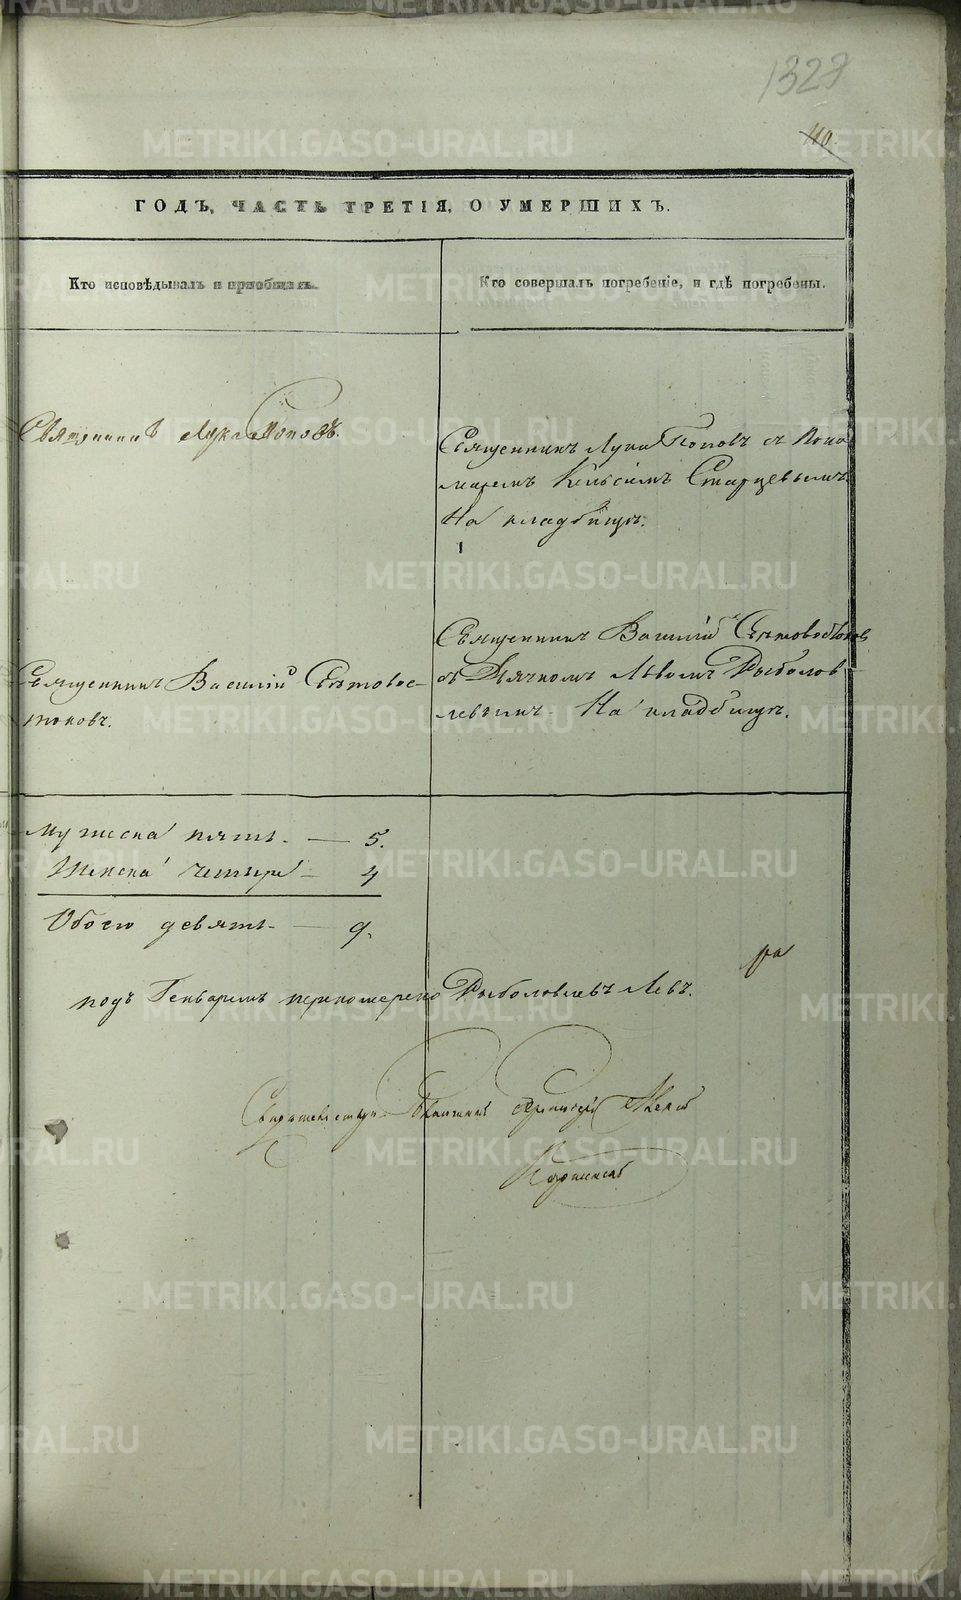 1328
40.
ГОДЪ, ЧАСТЬ ТРЕТІЯ, О УМЕРШИХЪ.
Кто исповѣдывалъ и пріобщалъ.
Кто совершалъ погребеніе, и гдѣ погребены.
Священникъ Лука Поповъ.
Священникъ Лука Поповъ съ Поно
маремъ Старцевымъ.
На кладбищѣ.
Священникъ Василій Свѣтовос-
токовъ.
Священникъ Василій Свѣтовостоков
съ Дьячкомъ Львомъ Рыболов
левымъ. На кладбищѣ.
Мужеска пять. — 5.
Женска четыре — 4
Обоего девять. — 9.
подъ Генваремъ Рыболовлевъ Левъ.
METRIKI.GASO-URAL.RU